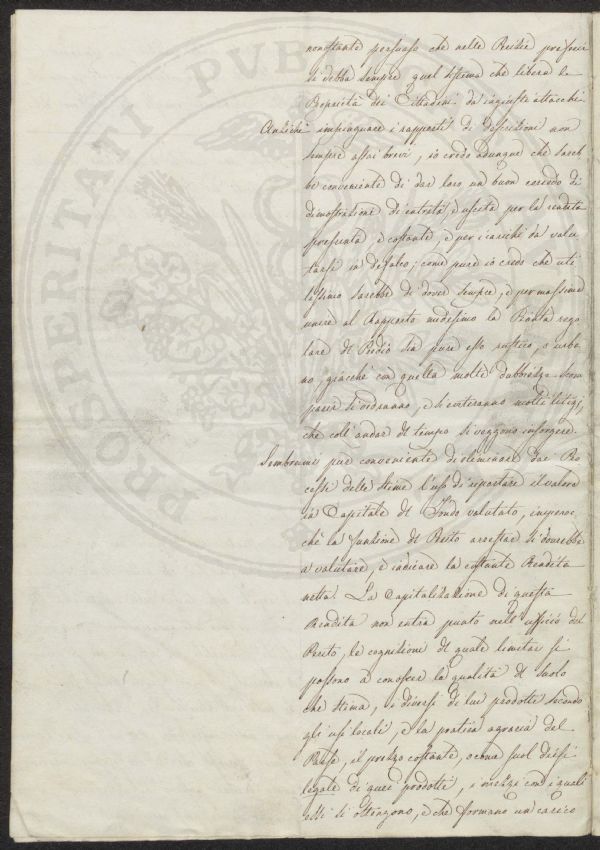 nonostante persuaso che nelle Perizie preferir
si debba sempre quel sistema che libera le
Proprietà dei Cittadini da ingiusti attacchi.
Anzichè impinguare i rapporti di descrizioni non
sempre assai brevi, io credo adunque che sareb¬
be conveniente di dar loro un buon corredo di
dimostrazione di entrata, e uscita per la rendita
presunta, e costante, e per i carichi da valu¬
tarsi in defalco; come pure io credo che uti
lissimo sarebbe di dover sempre, e per massima
unire al Rapporto medesimo la Pianta rego
lare del Predio sia pure esso rustico, o urba
no, giacchè con quella molte dubbiezze scom
parir si vedranno, e si eviteranno molti litigj,
che coll'andar del tempo si veggono insorgere.
Sembrami pur conveniente di eliminare dai Pro
cessi delle stime l'uso di riportare il valore
in Capitale del Fondo valutato, imperoc
chè la funzione del Perito arrestar si dovrebbe
a valutare, e indicare la costante Rendita
netta. La Capitalizzazione di questa
Rendita non entra punto nell'ufficio del
Perito, le cognizioni del quale limitar si
possono a conoscer la qualità del suolo
che stima, i diversi di lui prodotti secondo
gli usi locali, e la pratica agraria del
Paese, il prezzo costante, o come suol dirsi
legale di quei prodotti, i mezzi con i quali
essi si ottengono, e che formano un carico
PROSPERITATI PVB